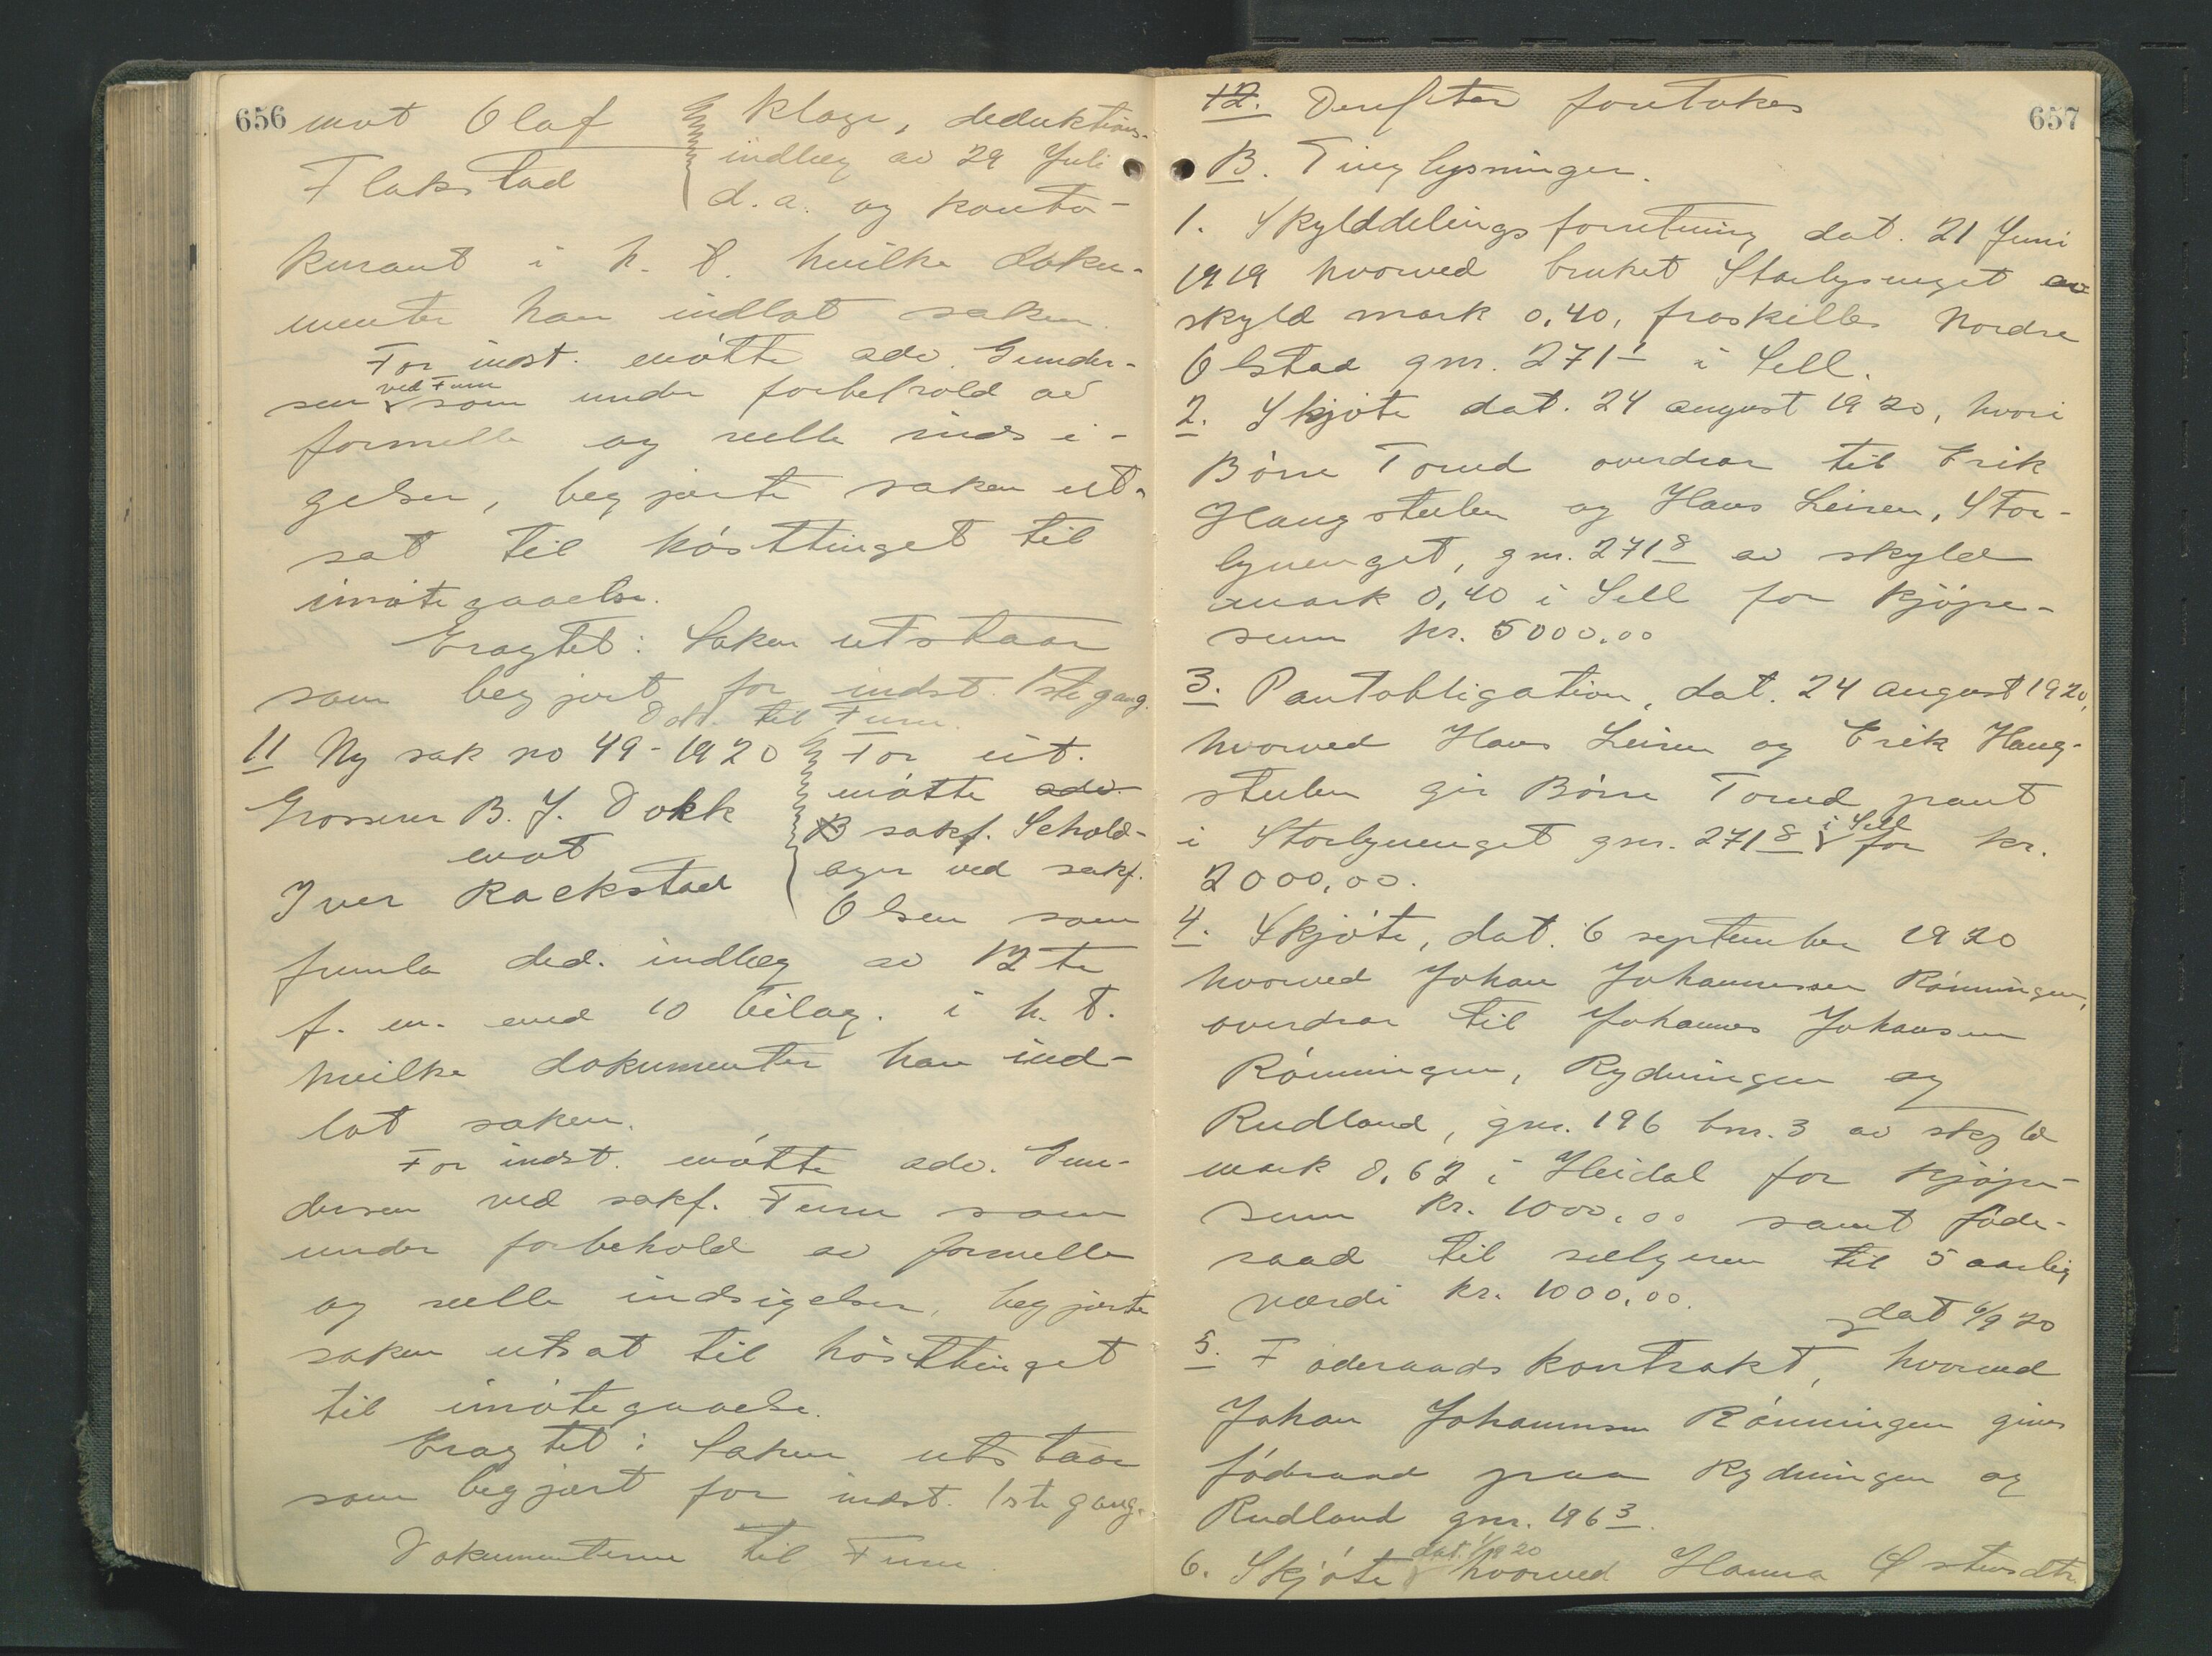 656
mot Olaf
Flakstad
klage, deduktions-
indlæg av 29 Juli
d. a. og konto-
kurant i h. t. hvilke doku-
menter han indlot saken.
For indst. møtte adv. Gunder-
sen ved Furu som under forbehold av
formelle og reelle indsi-
gelser, begjærte saken ut-
sat til høsttinget til
imøtegaaelse.
Eragtet: Saken utstaar
som begjært for indst. 1ste gang.
Dok. til Furu.
11 Ny sak no 49-1920
Grosserer B. J. Dokk
mot
Iver Rackstad
For cit.
møtte adv.
B sakf. Schold-
ager ved sakf.
Olsen som
fremla ded. indlæg av 12te
f. m. med 10 bilag. i h. t.
hvilke dokumenter han ind-
lot saken.
For indst. møtte adv. Gun-
dersen ved sakf. Furu som
under forbehold av formelle
og reelle indsigelser, begjærte
saken utsat til høsttinget
til imøtegaaelse.
Eragtet: Saken utstaar
som begjært for indst. 1ste gang.
Dokumenterne til Furu.
657
12. Derefter foretokes
B. Tinglysninger.
1. Skylddelingsforretning dat. 21 Juni
1919 hvorved bruket Storlyenget av
skyld mark 0,40, fraskilles Nordre
Olstad gnr. 271 1 i Sell.
2. Skjøte dat. 24 august 1920, hvori
Børre Torud overdrar til Erik
Haugstulen og Hans Leiren, Stor-
lyenget, gnr. 271 8 av skyld
mark 0,40 i Sell for kjøpe-
sum kr. 5000.00
3. Pantobligation, dat. 24 august 1920,
hvorved Hans Leiren og Erik Haug-
stulen gir Børre Torud pant
i Storlyenget gnr. 271 8 i Sell for kr.
2000,00.
4. Skjøte, dat. 6 september 1920
hvorved Johan Johannessen Rønningen,
overdrar til Johannes Johansen
Rønningen, Rydningen og
Rudland, gnr. 196 bnr. 3 av skyld
mark 0.62 i Heidal for kjøpe-
sum kr. 1000.00 samt føde-
raad til sælgeren til 5 aarlig
værdi kr. 1000,00.
dat 6/9 20
5. Føderaadskontrakt, hvorved
Johan Johannesen Rønningen gives
føderaad paa Rydningen og
Rudland gnr. 196 3.
6. Skjøte dat. 1/9 20 hvorved Hanna Østensdtr.